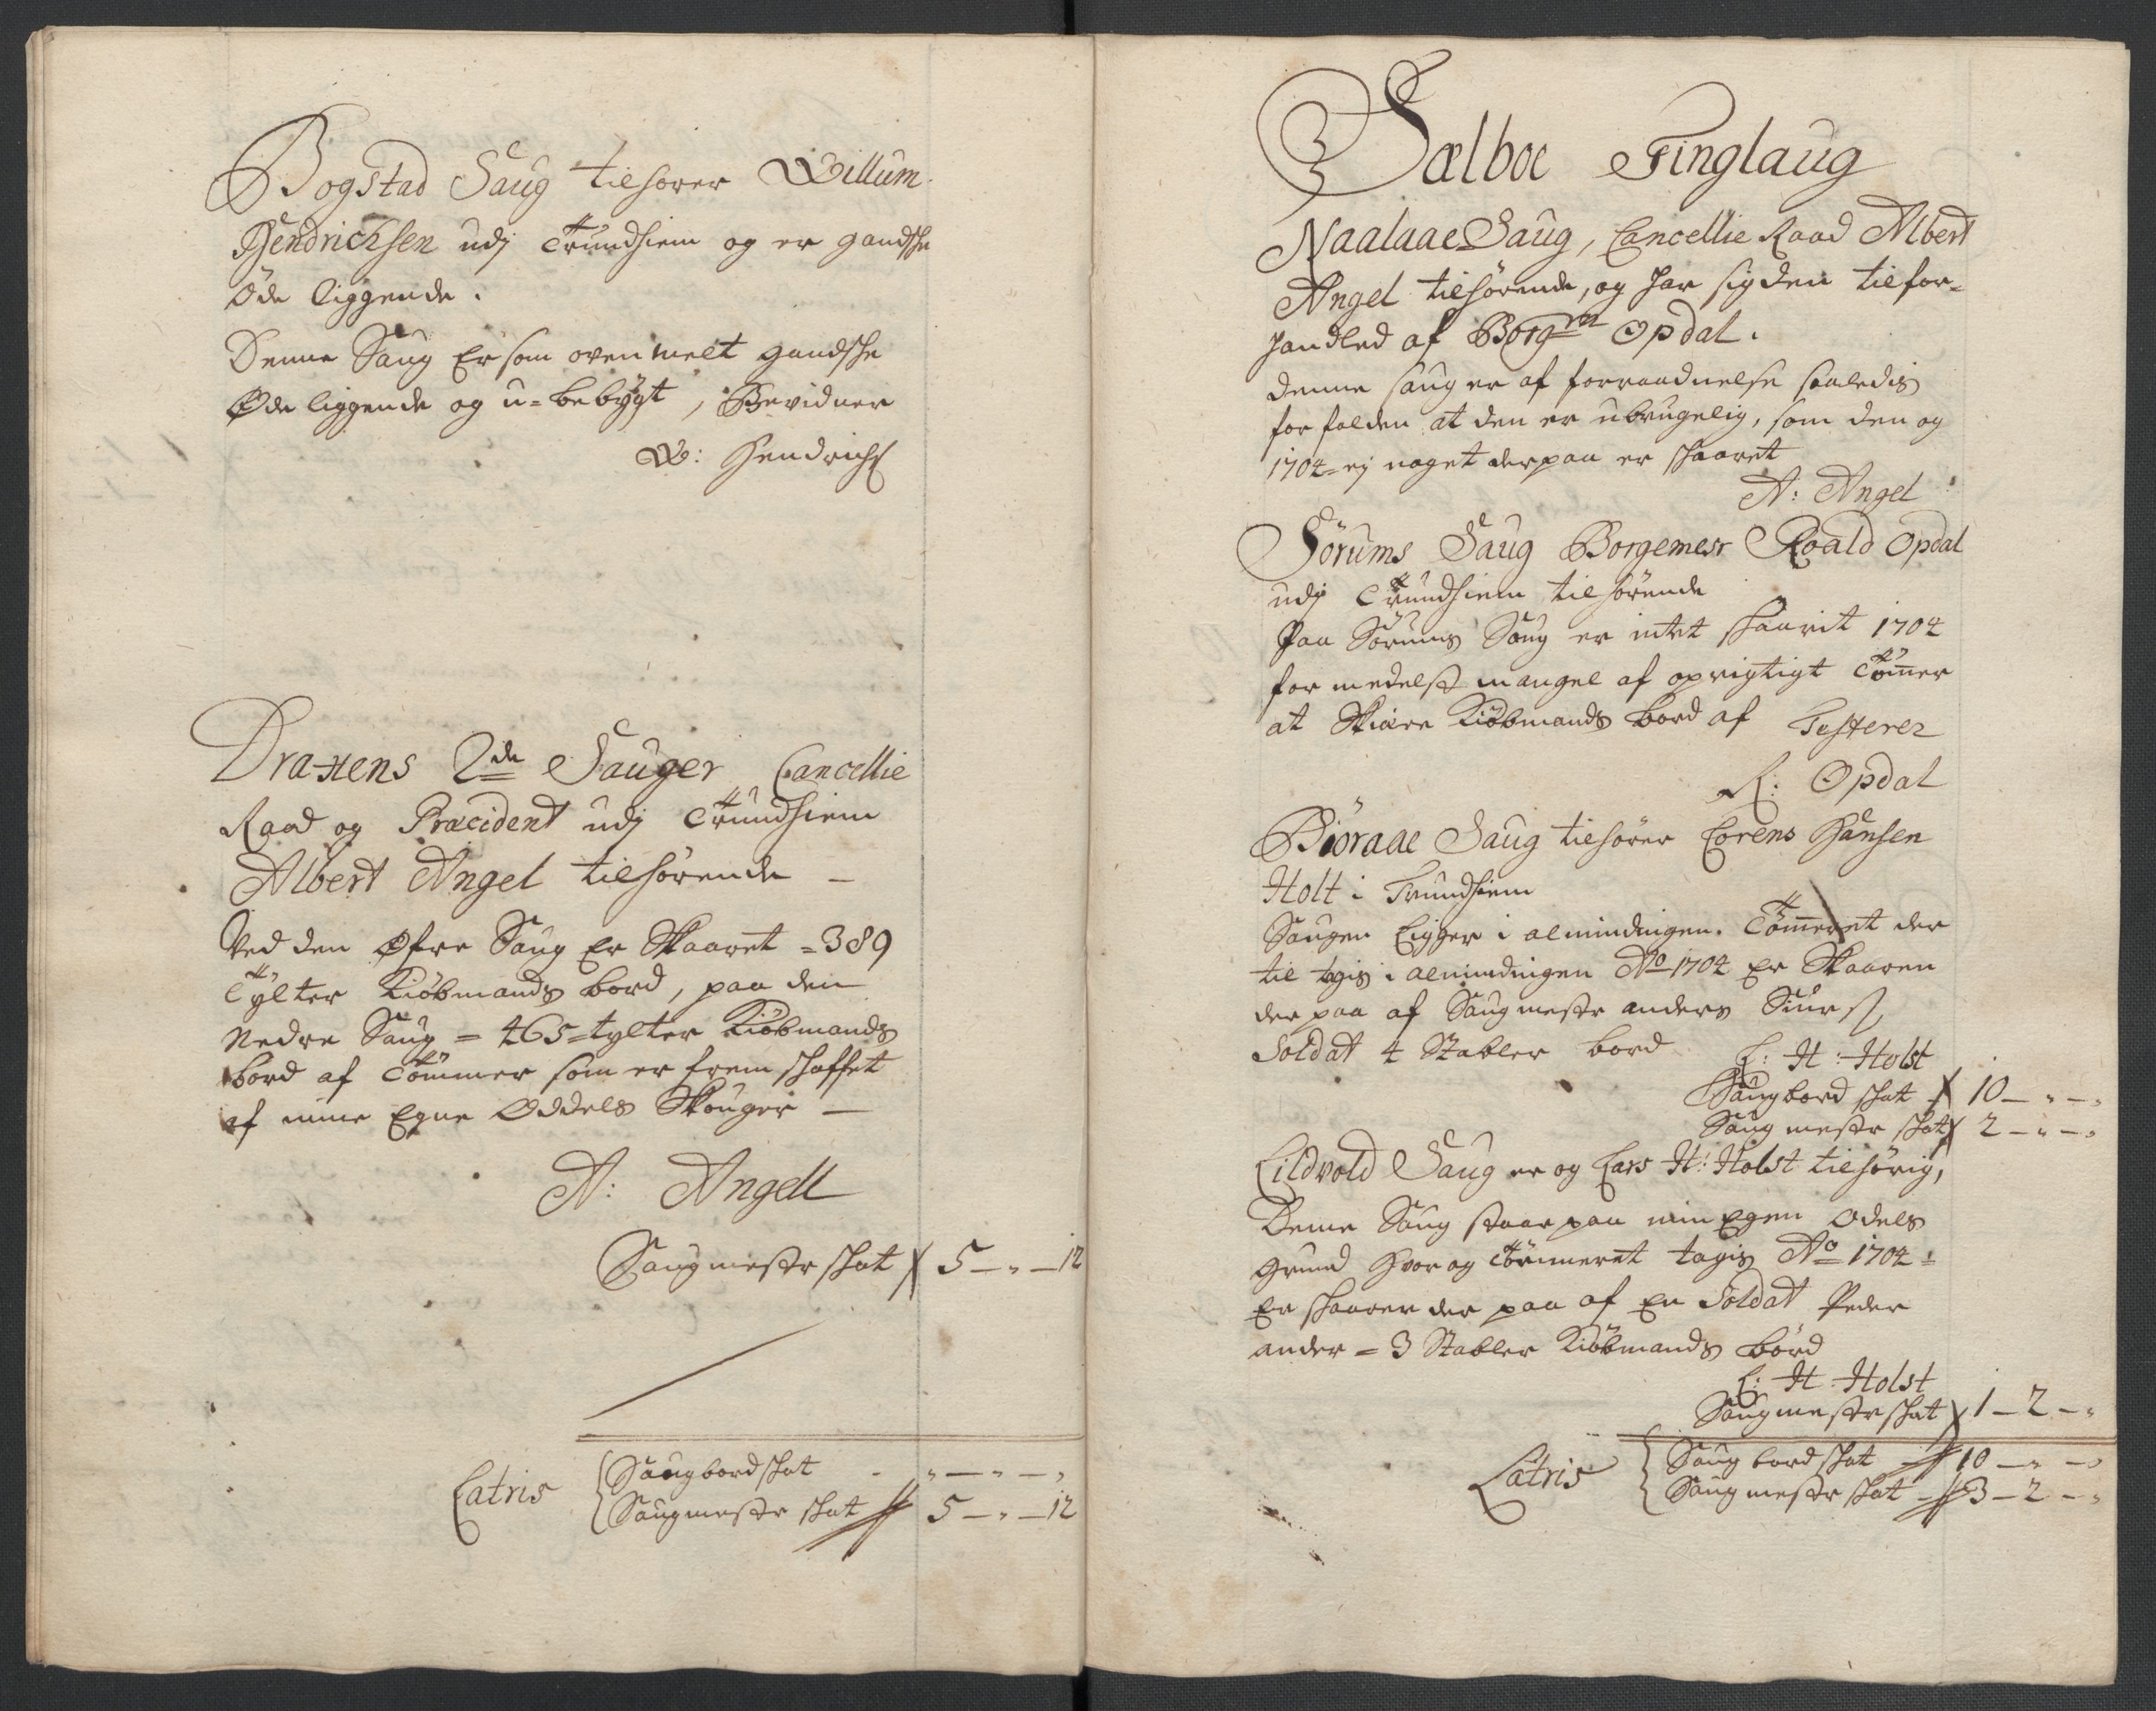 Bogstad Saug tilhører Willum
Hendrichsen udj Trundhiem og er gandske
Øde liggende.
Denne Saug Er som ovenmelt gandske
Øde liggende og u-bebÿgt, Bevidner
W: Hendrichs
Draxens 2de Sauger Cancellie
Raad og Præcident udj Trundhiem
Albert Angel tilhørende –
Ved den Øfre Saug Er Skaaret = 389
Tÿlter Kiøbmands bord, paa den
Nedre Saug = 465 = tylter Kiøbmands
bord af Tømmer som er fremskaffet
af mine Egne Oddels Skouger –
A: Angell
Saugmestr skat 5 – „ – 12
Latris Saugbordskat – „ – „ – „
Saugmestr skat 5 – „ – 12
Sælboe Tinglaug
Naalaae Saug, Cancellie Raad Albert
Angel tilhørende, og har sig den tilfor-
handled af Borgmr Opdal.
Denne saug er af forraadnelse saaledis
forfalden at den er ubrugelig, som den og
1704 = ej noget derpaa er skaaret
A: Angel
Sörums Saug Borgemestr Roald Opdal
udj Trundhiem tilhørende
Paa Sörums Saug er intet skaarit 1704
formedelst mangel af oprigtigt Tømer
at Skiære Kiöbmands bord af Testerer
R: Opdal
Biöraae Saug tilhører Lorens Hansen
Holt i Trundhiem
Saugen Ligger i almindingen. Tømeret der
til tagis i almindingen Ao 1704 Er Skaaren
der paa af Saugmestr anders Siurs,
Soldat 4 Stabler bord
L: H: Holst
Saugbord skat 10 – „ – „
Saug mestr skat 2 – „ – „
Lildvold Saug er og Lars H: Holst tilhørig,
Denne Saug staar paa min Egen Odels
Grund hvor og Tømmeret tagis Ao 1704 =
Er skaaren der paa af En Soldat Peder
ander = 3 Stabler Kiöbmands bord
L: H. Holst
Saugmestr skat 1 – 2 – „
Latris Saug bord skat – 10 – „ – „
Saug mestr skat – 3 – 2 – „